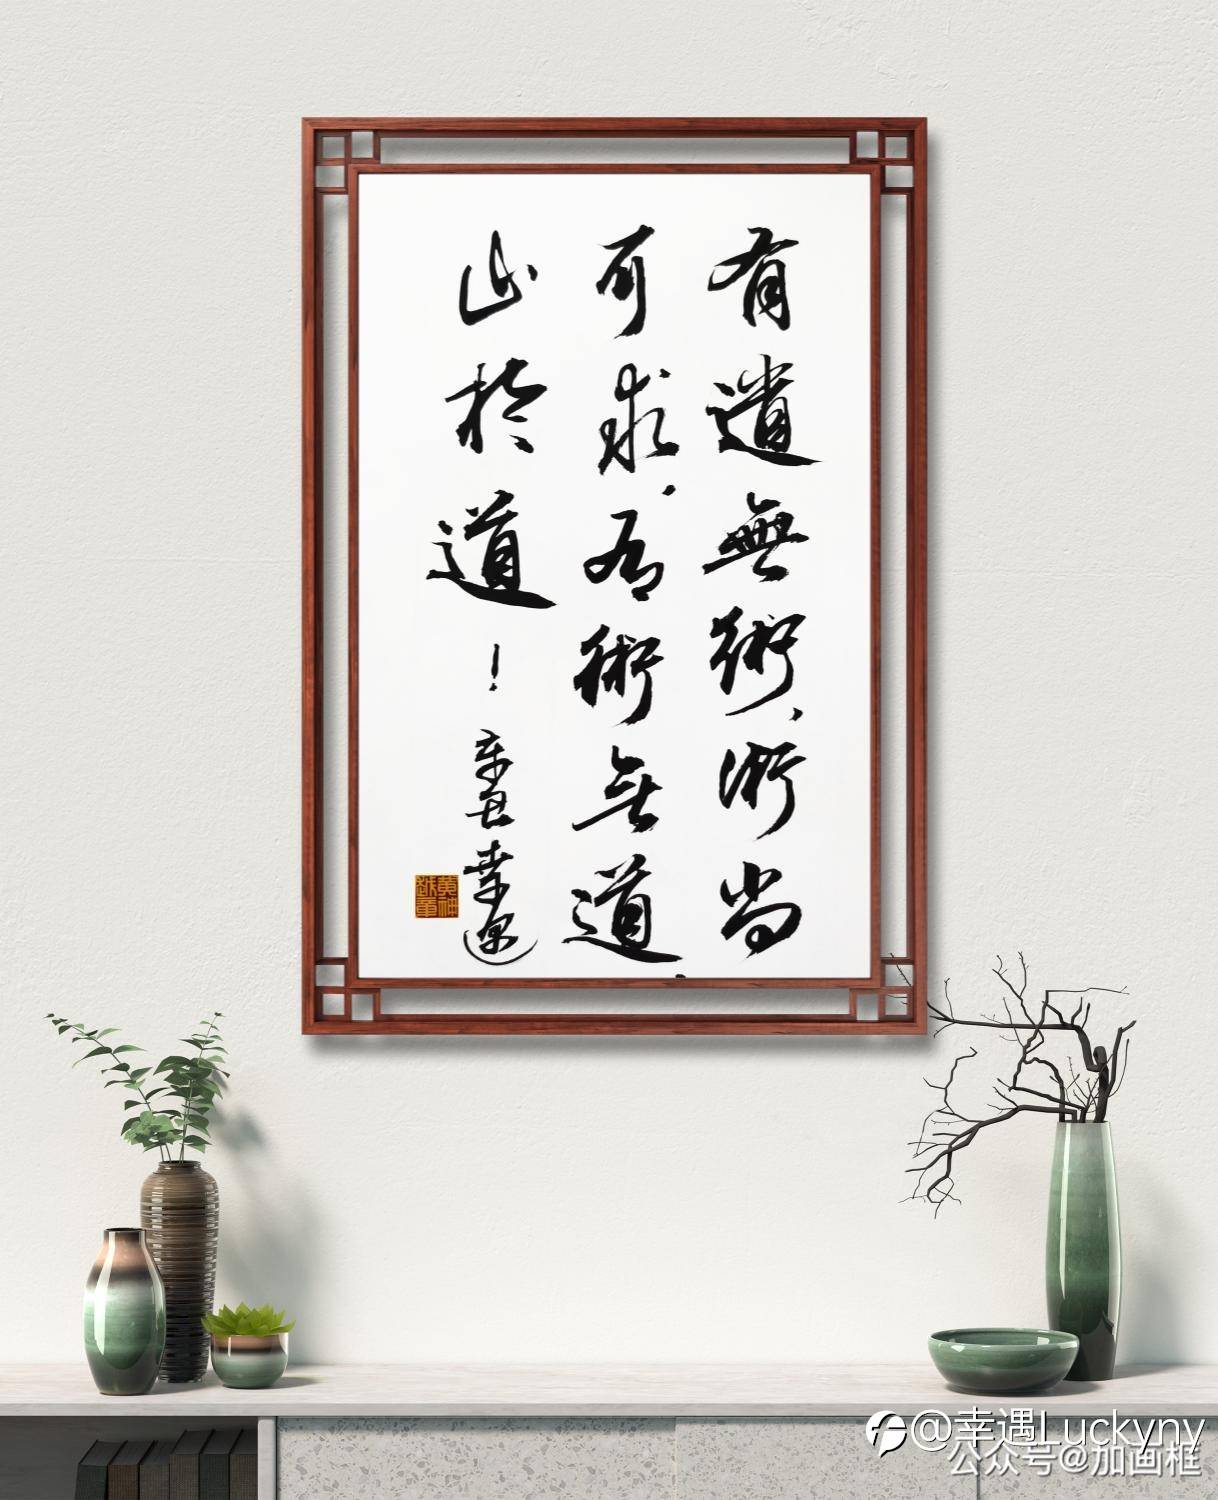 有道無術，術尚
可求，有術無道，
止於道！
辛丑幸遇
黄神越章
@幸遇Luckyny
公众号@加画框